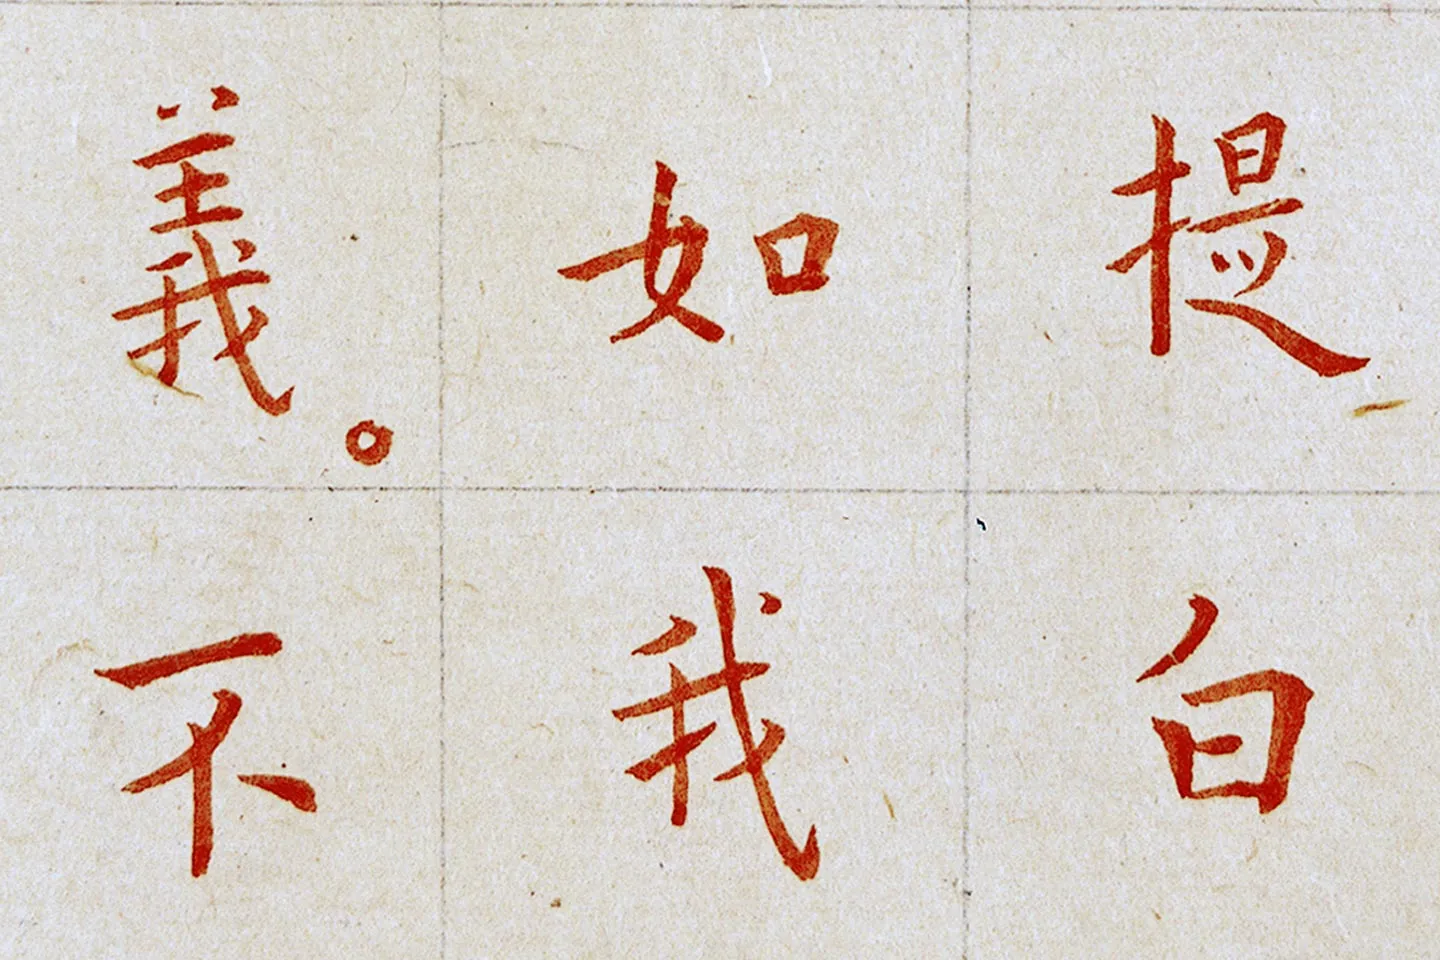 提白
如我
義。不